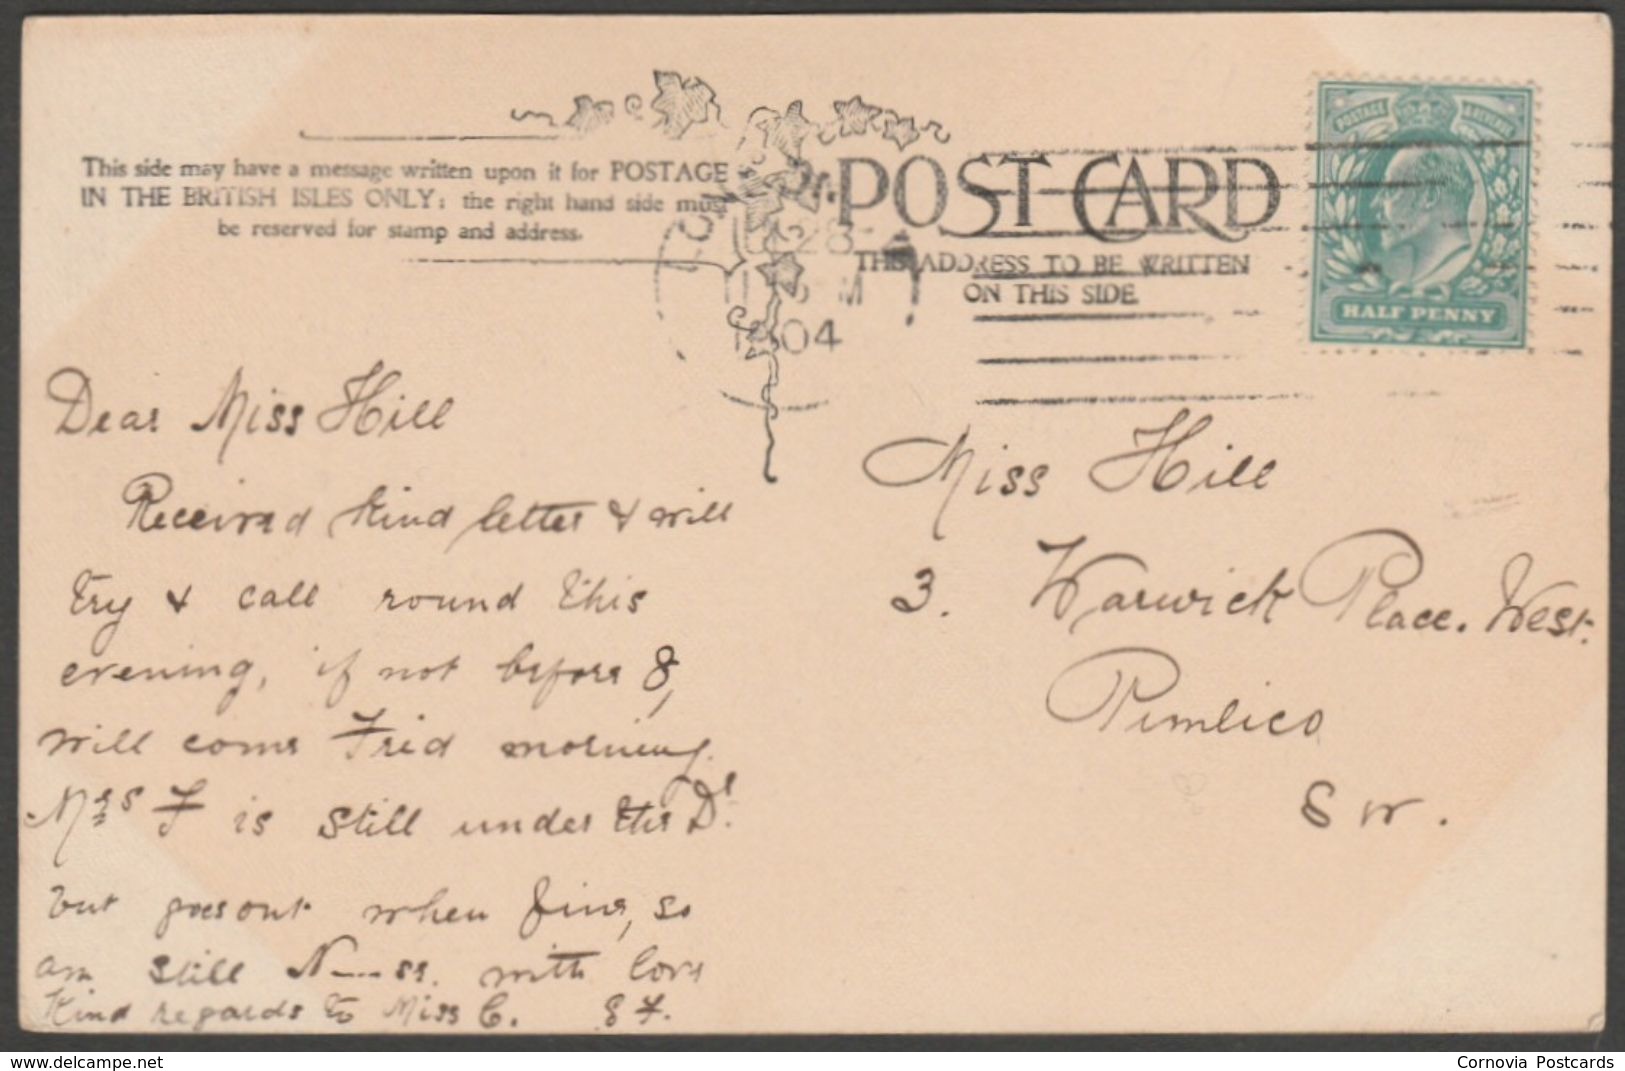 This side may have a message written upon it for POSTAGE
IN THE BRITISH ISLES ONLY: the right hand side must
be reserved for stamp and address.
POST CARD
THE ADDRESS TO BE WRITTEN
ON THIS SIDE.
POSTAGE & REVENUE
HALF PENNY
28
04
Dear Miss Hill
Received kind letter & will
try & call round this
evening, if not before 8,
will come Frid morning.
Mrs F is still under the Dr.
but goes out when fine, so
am still N----ss. with love
Kind regards to Miss C. E F.
Miss Hill
3. Warwick Place. West.
Pimlico
S W.
www.delcampe.net
Cornovia Postcards